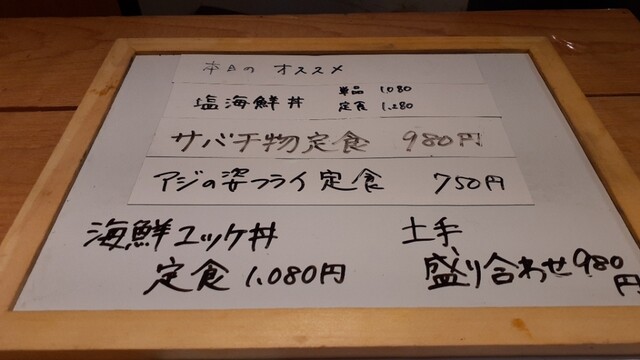 本日の オススメ
塩海鮮丼 単品 1,080
定食 1,280
サバ干物定食 980円
アジの姿フライ定食 750円
海鮮ユッケ丼
定食 1,080円
土手、
盛り合わせ 980
円